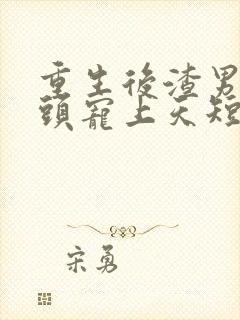 重生後渣男
頭寵上天短
宋勇